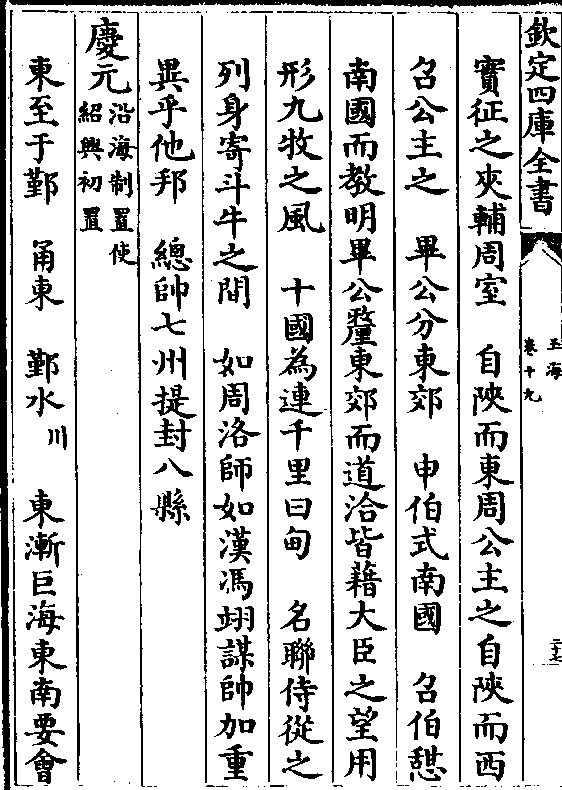 欽定四庫全書
玉海
卷十九
二十七
實征之夾輔周室　自陝而東周公主之自陝而西
召公主之　畢公分東郊　申伯式南國　召伯憇
南國而教明畢公釐東郊而道洽皆藉大臣之望用
形九牧之風　十國為連千里曰甸　名聯侍從之
列身寄斗牛之間　如周洛師如漢馮翊謀帥加重
異乎他邦　總帥七州提封八縣
慶元沿海制置使
紹興初置
東至于鄞　甬東　鄞水川　東漸巨海東南要會